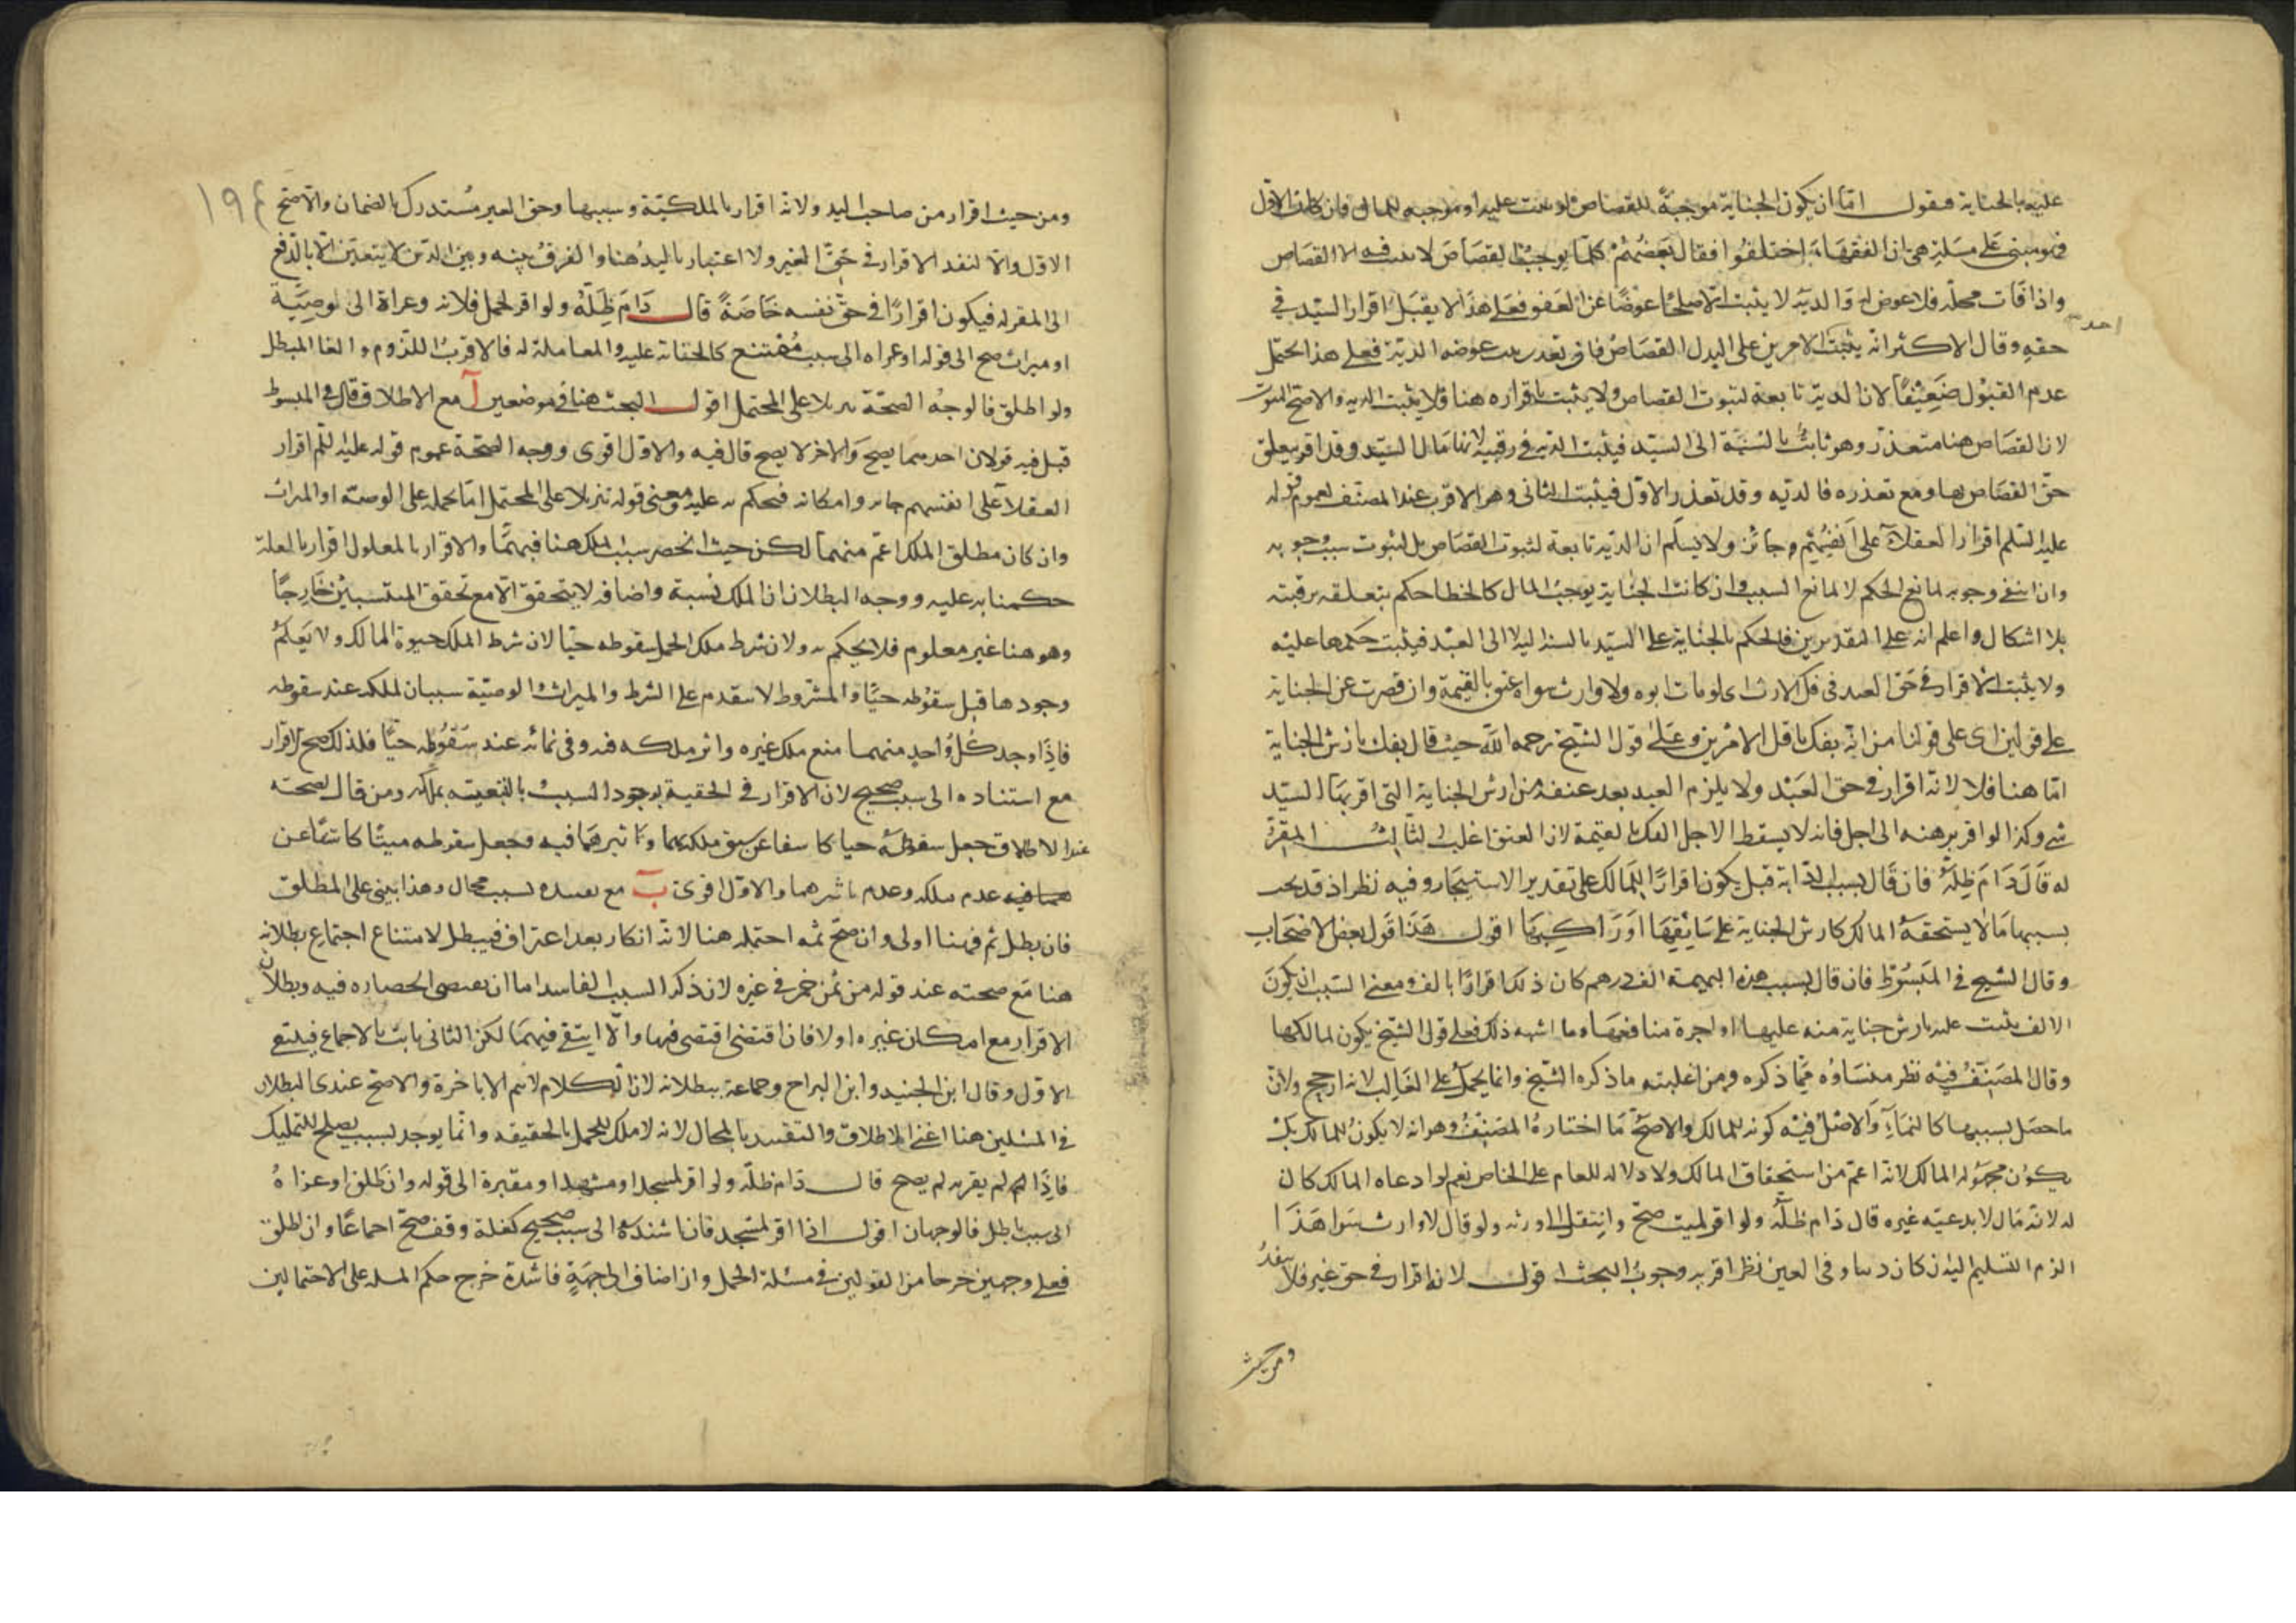 عليه بالجناية فنقول اما ان يكون الجناية موجبة للقصاص لو ثبت عليه او موجبة للمال فان كانت الاول
فهو مبنى على مسئلة هى ان الفقهاء اختلفوا فقال بعضهم كلما يوجب القصاص لا يثبت فيه الا القصاص
واذا فات محله فلا عوض له والدية لا يثبت الا صلحا عوضا عن العفو فعلى هذا لا يقبل اقرار السيد في
احد
حقه وقال الاكثر انه يثبت الامرين على البدل القصاص فان تعذر يثبت عوضه الدية فعلى هذا يحتمل
عدم القبول ضعيفا لان الدية تابعة لثبوت القصاص ولا يثبت باقراره هنا فلا يثبت الدية والاصح الثبوت
لان القصاص هنا متعذر وهو ثابت بالنسبة الى السيد فيثبت الدية في رقبته لانها مال السيد وقد اقر بتعلق
حق القصاص بها ومع تعذره فالدية وقد تعذر الاول فيثبت الثانى وهو الاقرب عند المصنف لعموم قوله
عليه السلم اقرار العقلاء على انفسهم جائز ولا يسلم ان الدية تابعة لثبوت القصاص بل لثبوت سبب وجوبه
وان انتفى وجوبه لمانع الحكم لا لمانع السبب وان كانت الجناية يوجب المال كالخطا حكم بتعلقه برقبته
بلا اشكال واعلم انه على التقديرين فالحكم بالجناية على السيد بالنسبة اليه لا الى العبد فيثبت حكمها عليه
ولا يثبت الاقرار في حق العبد فى فك الارث اى لو مات ابوه ولا وارث سواه عتق بالقيمة وان قصرت عن الجناية
على قولين اى على قولنا من انه يفك باقل الامرين وعلى قول الشيخ رحمه الله حيث قال يفك بارش الجناية
اما هنا فلا لانه اقرار في حق العبد ولا يلزم العبد بعد عتقه من ارش الجناية التى اقر بها السيد
شى وكذا لو اقر برهنه الى اجل فانه لا يسقط الاجل الفك بالقيمة لان العتق اغلب الثالث المقر
له قال دام ظله فان قال بسبب الدابة قيل يكون اقرارا للمالك على تقدير الاستيجار وفيه نظر اذ قد يجب
بسببها مالا يستحقه المالك كارش الجناية على سايقها او راكبها اقول هذا قول بعض الاصحاب
وقال الشيخ في المبسوط فان قال بسبب هذه البهيمة الف درهم كان ذلك اقرارا بالف ومعنى السبب ان يكون
الالف يثبت عليه بارش جناية منه عليها او اجرة منافعها وما اشبه ذلك فعلى قول الشيخ يكون لمالكها
وقال المصنف فيه نظر منشاؤه مما ذكره ومن اغلبية ما ذكره الشيخ وانما يحمل على الغالب لانه ارجح ولان
ما حصل بسببها كالنماء والاصل فيه كونه للمالك والاصح ما اختاره المصنف وهو انه لا يكون للمالك بل
يكون مجهول المالك لانه اعم من استحقاق المالك ولا دلالة للعام على الخاص نعم لو ادعاه المالك كان
له لانه مال لا يدعيه غيره قال دام ظله ولو اقر لميت صح وانتقل الى ورثته ولو قال لا وارث سوا هذا
الزم التسليم اليه ان كان دينا وفى العين نظر اقربه وجوب البحث اقول لانه اقرار في حق غيره فلا ينفذ
ومن حيث
١٩٤
ومن حيث اقرار من صاحب اليد ولانه اقرار بالملكية وسببها وحق الغير مستدرك بالضمان والاصح
الاول والا لنفذ الاقرار في حق الغير ولا اعتبار باليد هنا والفرق بينه وبين الدين لا يتعين الا بالدفع
الى المقر له فيكون اقرارا في حق نفسه خاصة قال دام ظله ولو اقر لحمل فلانه وعزاه الى لوصية
او ميراث صح الى قوله او عزاه الى سبب ممتنع كالجناية عليه والمعاملة له فالاقرب اللزوم والغا المبطل
ولو اطلق فالوجه الصحة تنزيلا على المحتمل اقول البحث هنا في موضعين آ مع الاطلاق قال في المبسوط
قيل فيه قولان احدهما يصح والاخر لا يصح قال فيه والاول اقوى ووجه الصحة عموم قوله عليه السلم اقرار
العقلا على انفسهم جايز وامكانه فيحكم به عليه ومعنى قوله تنزيلا على المحتمل اما يحمله على الوصية او الميراث
وان كان مطلق الملك اعم منهما لكن حيث انحصر سبب الملك هنا فيهما والاقرار بالمعلول اقرار بالعلة
حكمنا به عليه ووجه البطلان ان الملك نسبة واضافة لا يتحقق الا مع تحقق المنتسبين خارجا
وهو هنا غير معلوم فلا يحكم به ولان شرط ملك الحمل سقوطه حيا لان شرط الملك حيوة المالك ولا يعلم
وجودها قبل سقوطه حيا والمشروط لا يتقدم على الشرط والميراث والوصية سببان لملكه عند سقوطه
فاذا وجد كل واحد منهما منع ملك غيره واثر ملكه فيه وفى نمائه عند سقوطه حيا فلذلك صح الاقرار
مع استناده الى سبب صحيح لان الاقرار في الحقيقة بوجود السبب بالتبعية بملكه ومن قال بصحته
عند الاطلاق جعل سقوطه حيا كاشفا عن سبق ملكه لهما وتاثيرهما فيه وجعل سقوطه ميتا كاشفا عن
عدم ملكه وعدم تاثيرهما والاول اقوى ب مع تقييده بسبب محال وهذا يبنى على المطلق
فان بطل ثم فهنا اولى وان صح ثمه احتمله هنا لانه انكار بعد اعتراف فيبطل لامتناع اجتماع بطلانه
هنا مع صحته عند قوله من ثمن خمر في غيره لان ذكر السبب الفاسد اما ان يقتضى انحصاره فيه وبطلان
الاقرار مع امكان غيره او لا فان اقتضى اقتضى فيهما والا انتفى فيهما لكن الثانى ثابت بالاجماع فينتفى
الاول وقال ابن الجنيد وابن البراج وجماعة ببطلانه لان الكلام لا يتم الا باخره والاصح عندى البطلان
في المسئلتين هنا اعنى الاطلاق والتقييد بالمحال لانه لا ملك للحمل بالحقيقه وانما يوجد بسبب يصلح للتمليك
فاذا لم يقر به لم يصح قال دام ظله ولو اقر لمسجد او مشهد او مقبرة الى قوله وان طلق او عزاه
الى سبب باطل فالوجهان اقول اذا اقر لمسجد فان اسنده الى سبب صحيح كغلة وقف صح اجماعا وان اطلق
فعلى وجهين خرجا من القولين في مسئلة الحمل وان اضاف الى جهة فاسدة خرج حكم المسئلة على الاحتمالين